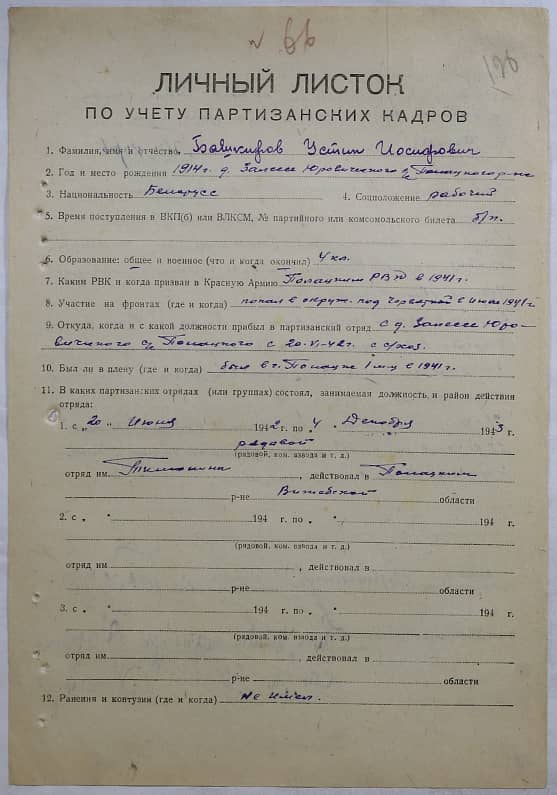 N 66
126
ЛИЧНЫЙ ЛИСТОК
ПО УЧЕТУ ПАРТИЗАНСКИХ КАДРОВ
1. Фамилия, имя и отчество Башкиров Устин Иосифович
2. Год и место рождения 1914 г. д. Залесье Юровичского с/с Полацкого р-на
3. Национальность Беларусс 4. Соцположение рабочий
5. Время поступления в ВКП(б) или ВЛКСМ, № партийного или комсомольского билета б/п.
6. Образование: общее и военное (что и когда окончил) 4 кл.
7. Каким РВК и когда призван в Красную Армию Полацким РВК в 1941 г.
8. Участие на фронтах (где и когда) попал в окруж. под в июле 1941 г
9. Откуда, когда и с какой должности прибыл в партизанский отряд с д. Залесье Юро-
вичского с/с Полацкого с 20-VI-42 г. с с/хоз.
10. Был ли в плену (где и когда) был в г. Полацке 1 м-ц в 1941 г.
11. В каких партизанских отрядах (или группах) состоял, занимаемая должность, и район действия
отряда:
1. с „20" Июня 1942 г. по „4. Декабря 1943 г.
рядовой
(рядовой, ком. взвода и т. д.)
отряд им. , действовал в Полацким
р-не Витебской области
2. с „ " 194 г. по „ " 194 г.
(рядовой, ком. взвода и т. д.)
отряд им , действовал в
р-не области
3. с „ " 194 г. по „ " 194 г.
(рядовой, ком. взвода и т. д.)
отряд им. , действовал в
р-не области
12. Ранения и контузии (где и когда) не имел.